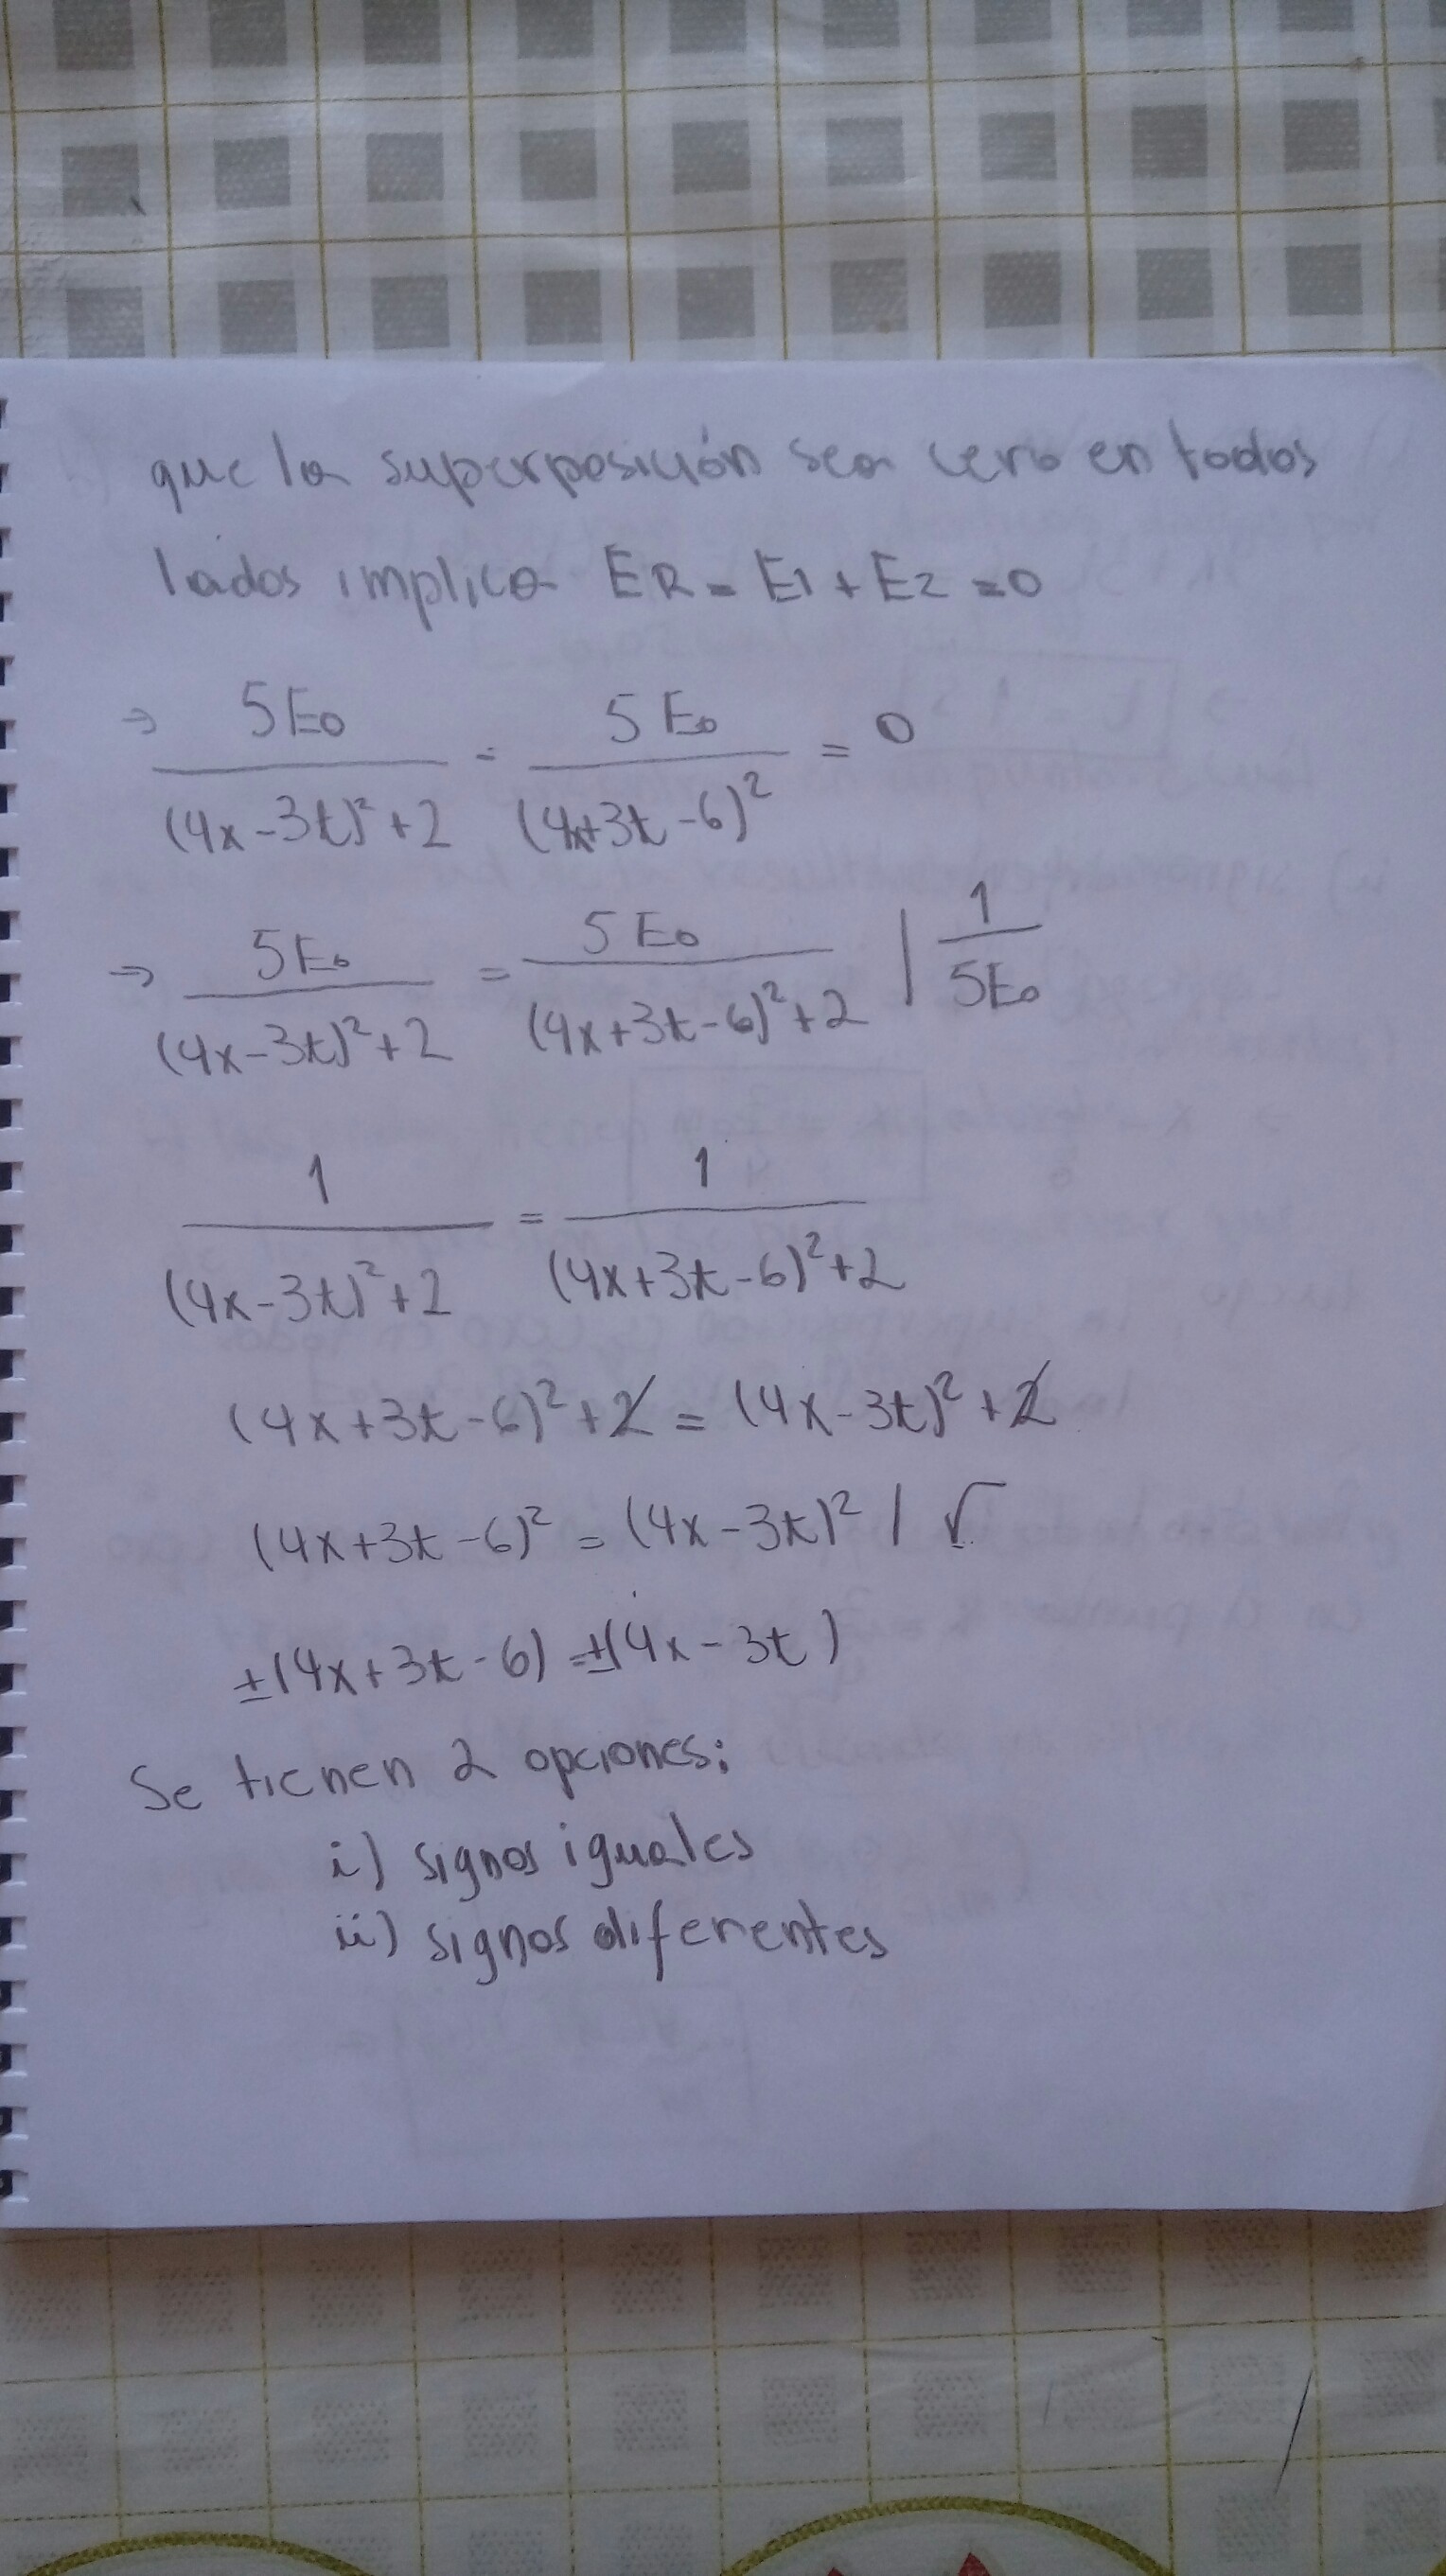 que la superposición sea cero en todos
lados implica ER = E1 + E2 = 0
⇒ 5E0 / ((4x-3t)² + 2) - 5E0 / (4x+3t-6)² = 0
⇒ 5E0 / ((4x-3t)² + 2) = 5E0 / ((4x+3t-6)² + 2) | 1 / 5E0
1 / ((4x-3t)² + 2) = 1 / ((4x+3t-6)² + 2)
(4x+3t-6)² + 2 = (4x-3t)² + 2
(4x+3t-6)² = (4x-3t)² / √
±(4x+3t-6) = ±(4x-3t)
Se tienen 2 opciones:
i) signos iguales
ii) signos diferentes